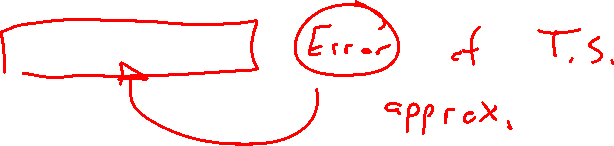 Error of T.S.
approx.